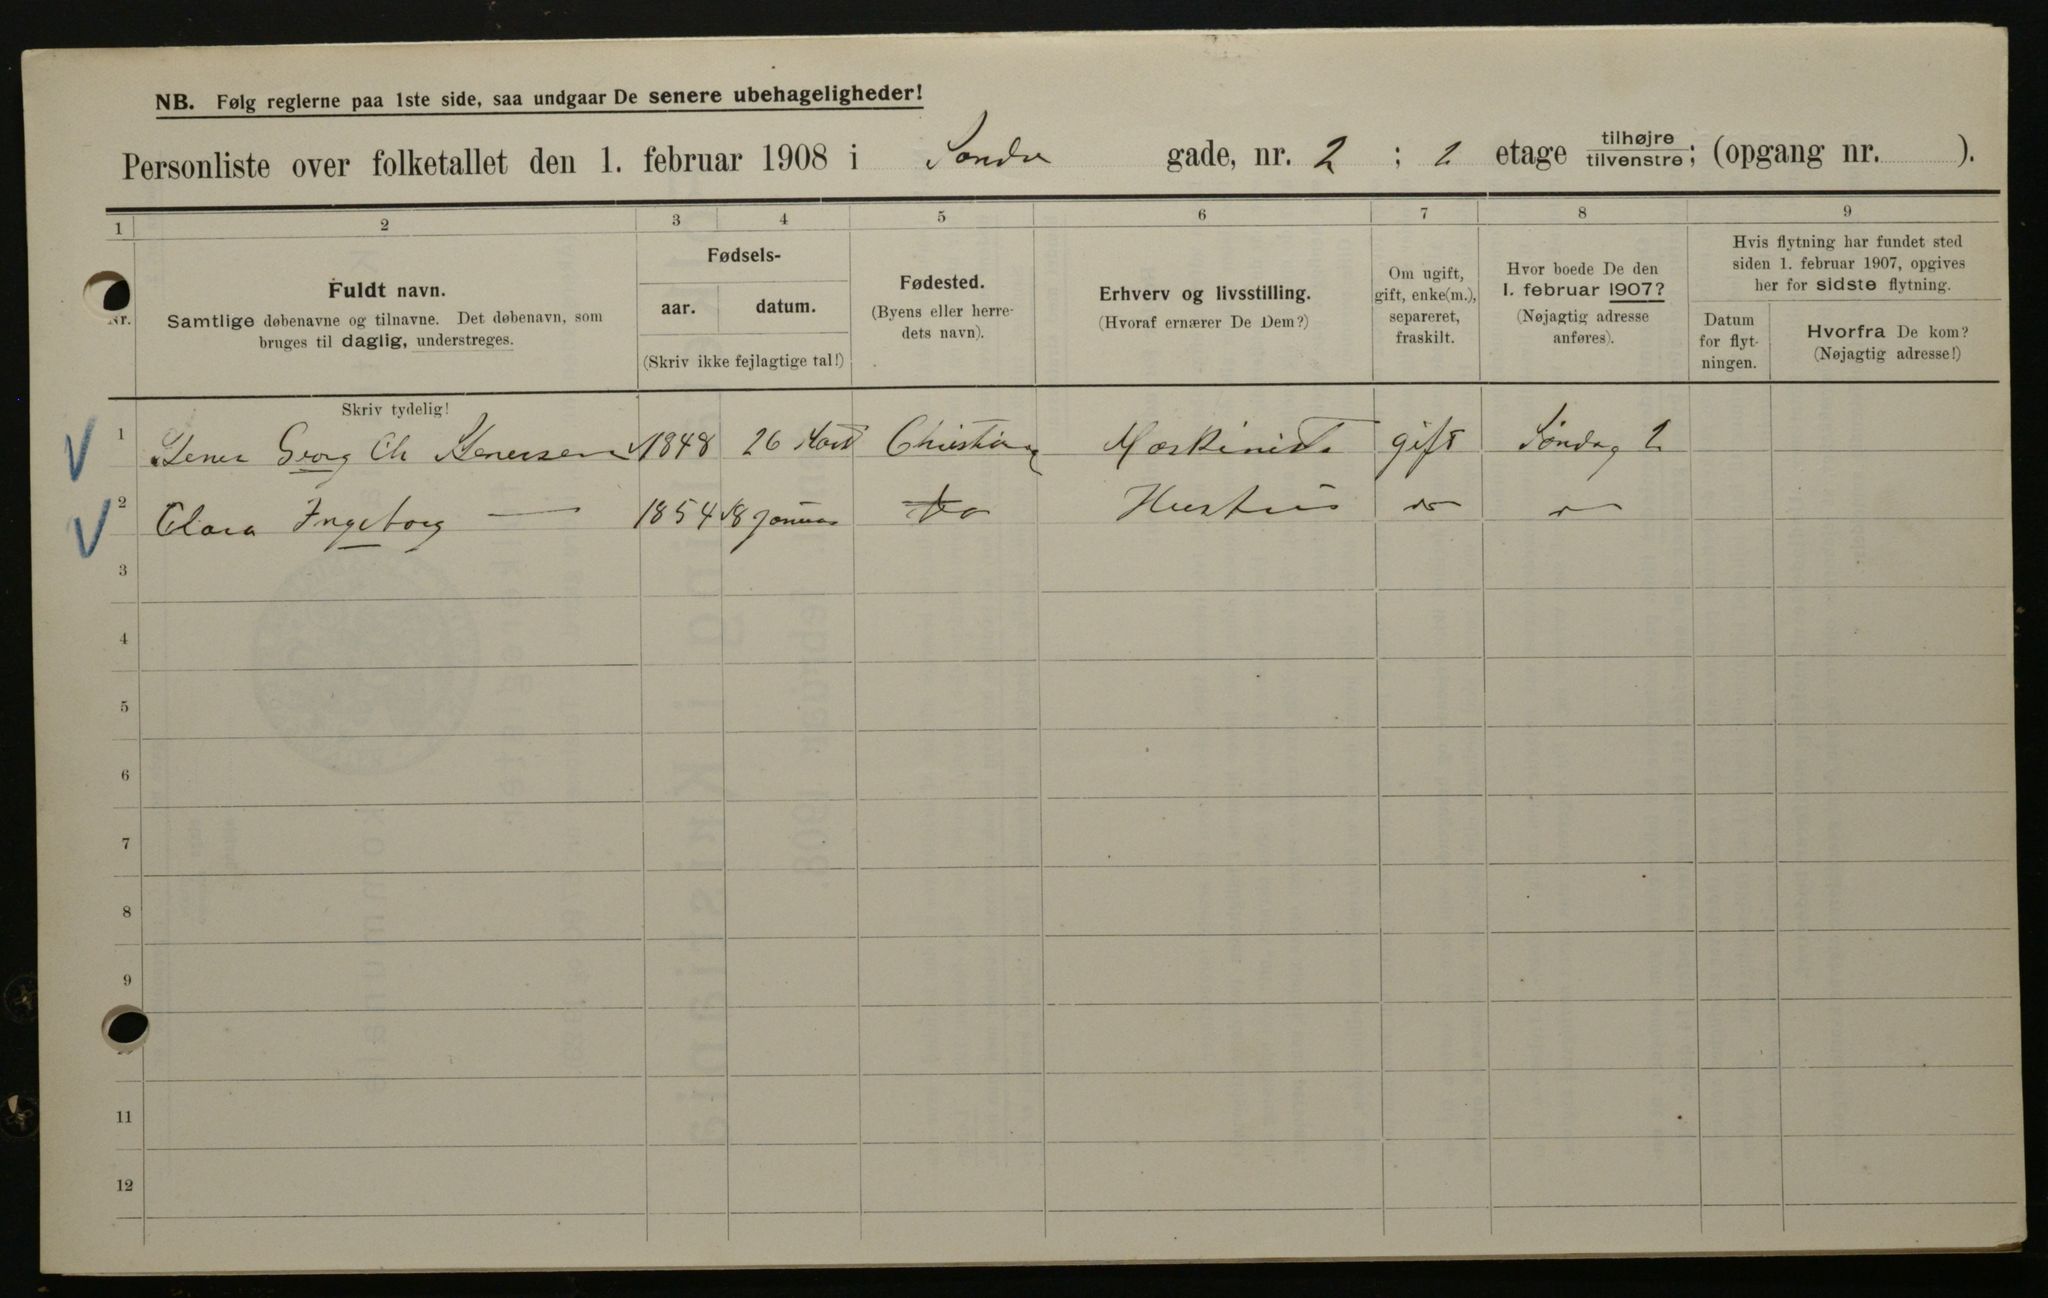 NB. Følg reglerne paa 1ste side, saa undgaar De senere ubehageligheder!
Personliste over folketallet den 1. februar 1908 i Søndre gade, nr. 2 ; 2 etage tilhøjre/tilvenstre; (opgang nr. ).
1 2 3 4 5 6 7 8 9
Nr.
Fuldt navn.
Samtlige døbenavne og tilnavne. Det døbenavn, som
bruges til daglig, understreges.
Fødsels-
aar. datum.
(Skriv ikke fejlagtige tal!)
Fødested.
(Byens eller herre-
dets navn).
Erhverv og livsstilling.
(Hvoraf ernærer De Dem?)
Om ugift,
gift, enke(m.),
separeret,
fraskilt.
Hvor boede De den
1. februar 1907?
(Nøjagtig adresse
anføres).
Hvis flytning har fundet sted
siden 1. februar 1907, opgives
her for sidste flytning.
Datum
for flyt-
ningen.
Hvorfra De kom?
(Nøjagtig adresse!)
Skriv tydelig!
1 Georg Ch 1848 26 Christiania Maskinist gift Søndag 2
2 Clara Ingeborg — 1854 18 Januar do Hustru do
3
4
5
6
7
8
9
11
12